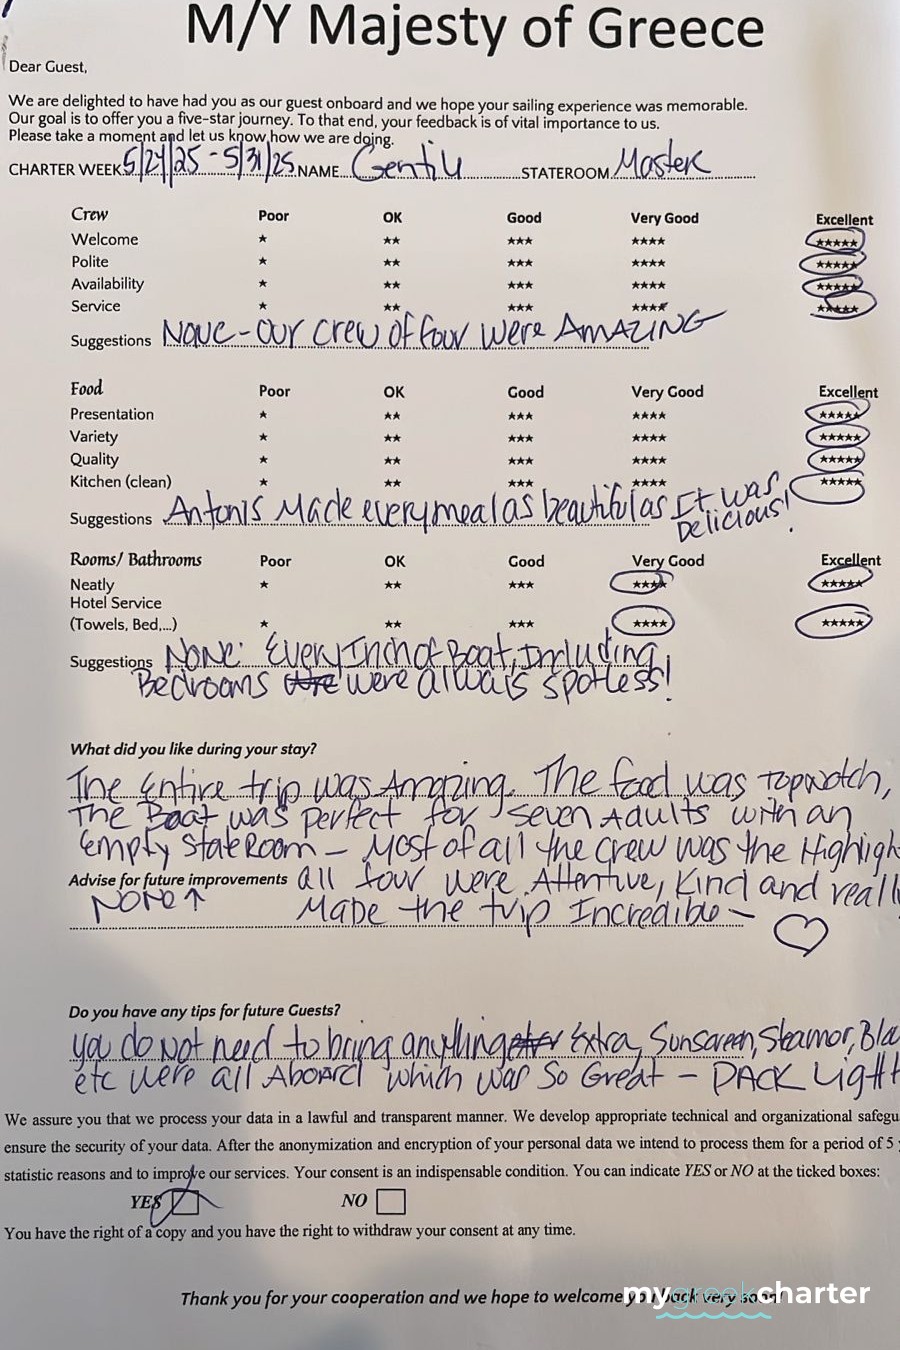 M/Y Majesty of Greece
Dear Guest,
We are delighted to have had you as our guest onboard and we hope your sailing experience was memorable.
Our goal is to offer you a five-star journey. To that end, your feedback is of vital importance to us.
Please take a moment and let us know how we are doing.
CHARTER WEEK 5/24/25 - 5/31/25 NAME Gentile STATEROOM Master
Crew Poor OK Good Very Good Excellent
Welcome ★ ★★ ★★★ ★★★★ ★★★★★
Polite ★ ★★ ★★★ ★★★★ ★★★★★
Availability ★ ★★ ★★★ ★★★★ ★★★★★
Service ★ ★★ ★★★ ★★★★ ★★★★★
Suggestions None - Our crew of four were AMAZING
Food Poor OK Good Very Good Excellent
Presentation ★ ★★ ★★★ ★★★★ ★★★★★
Variety ★ ★★ ★★★ ★★★★ ★★★★★
Quality ★ ★★ ★★★ ★★★★ ★★★★★
Kitchen (clean) ★ ★★ ★★★ ★★★★ ★★★★★
Suggestions Antonis Made every meal as beautiful as It was
Delicious!
Rooms/ Bathrooms Poor OK Good Very Good Excellent
Neatly ★ ★★ ★★★ ★★★★ ★★★★★
Hotel Service
(Towels, Bed,...) ★ ★★ ★★★ ★★★★ ★★★★★
Suggestions NONE: Every Inch of Boat, Including
Bedrooms were always spotless!
What did you like during your stay?
The Entire trip was Amazing. The food was Topnotch,
The Boat was perfect for seven Adults with an
Empty StateRoom - Most of all the crew was the Highligh
Advise for future improvements all four were Attentive, Kind and reall
NONE ↑ Made the trip Incredible - ♡
Do you have any tips for future Guests?
you do Not need to bring anything Extra, Sunscreen, Steamor, Blo
etc were all Aboard which was So Great - PACK Light
We assure you that we process your data in a lawful and transparent manner. We develop appropriate technical and organizational safegu
ensure the security of your data. After the anonymization and encryption of your personal data we intend to process them for a period of 5
statistic reasons and to improve our services. Your consent is an indispensable condition. You can indicate YES or NO at the ticked boxes:
YES NO
You have the right of a copy and you have the right to withdraw your consent at any time.
Thank you for your cooperation and we hope to welcome you back very soon!
mygreekcharter